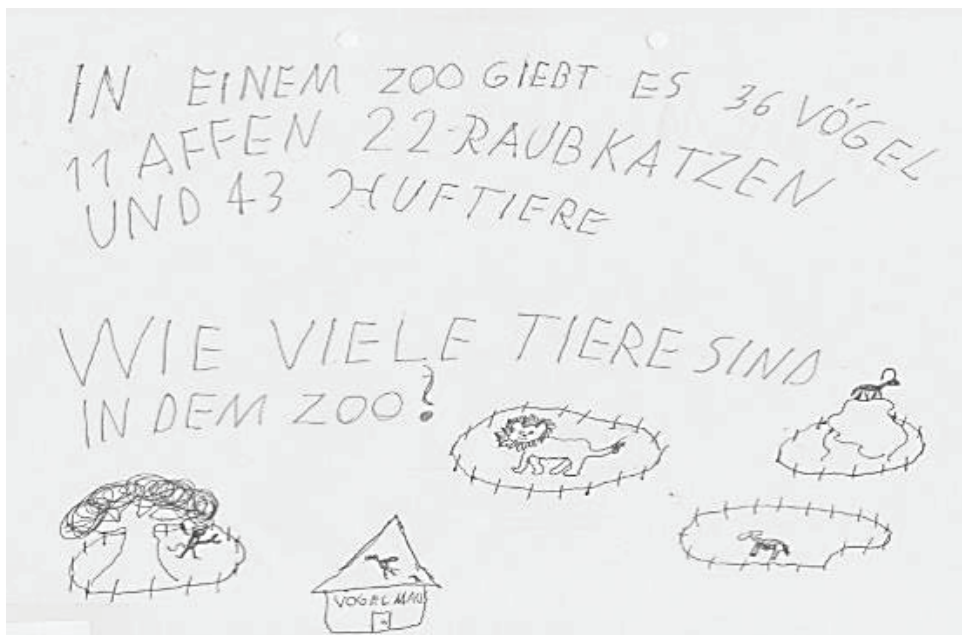 IN EINEM ZOO GIEBT ES 36 VÖGEL
11 AFFEN 22 RAUBKATZEN
UND 43 HUFTIERE
WIE VIELE TIERE SIND
IN DEM ZOO?
VOGELMAUS